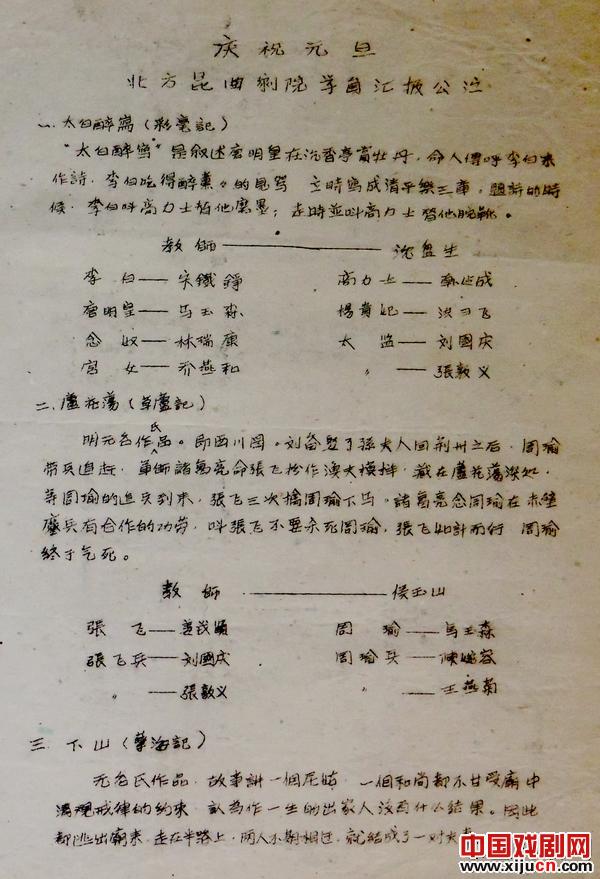 庆祝元旦
北方昆曲剧院学員汇报公演
一. 太白醉寫(彩毫記)
"太白醉寫"是叙述唐明皇在沉香亭賞牡丹,命人傳呼李白来
作詩,李白吃得醉薰々的 立時寫成清平樂三章,題詩的時
候,李白叫高力士替他磨墨;走時並叫高力士替他脱靴。
教師——沈盘生
李白——宋鐵錚 高力士
唐明皇——马玉森 楊貴妃
念奴——林瑞康 太監——刘國庆
宮女——乔燕和 〃——張敦义
二. 蘆花蕩(草廬記)
明无名氏作品。即西川图。刘备娶了孫夫人回荆州之后,周瑜
带兵追赶,軍師諸葛亮命張飞扮作漁夫模样,藏在蘆花蕩深処,
等周瑜的追兵到来,張飞三次擒周瑜下马。諸葛亮念周瑜在赤壁
鏖兵有合作的功劳,叫張飞不要杀死周瑜,張飞如計而行 周瑜
终于气死。
教師——侯玉山
張飞 周瑜——马玉森
張飞兵——刘國庆 周瑜兵
〃——張敦义 〃——王燕菊
三. 下山(孽海記)
无名氏作品,故事讲一個尼姑,一個和尚都不甘受廟中
清規戒律的約束,認為作一生的出家人没有什么结果。因此
都逃出廟来,走在半路上,两人不期相遇,就結成了一对夫妻
中国戏剧网
www.xijucn.com